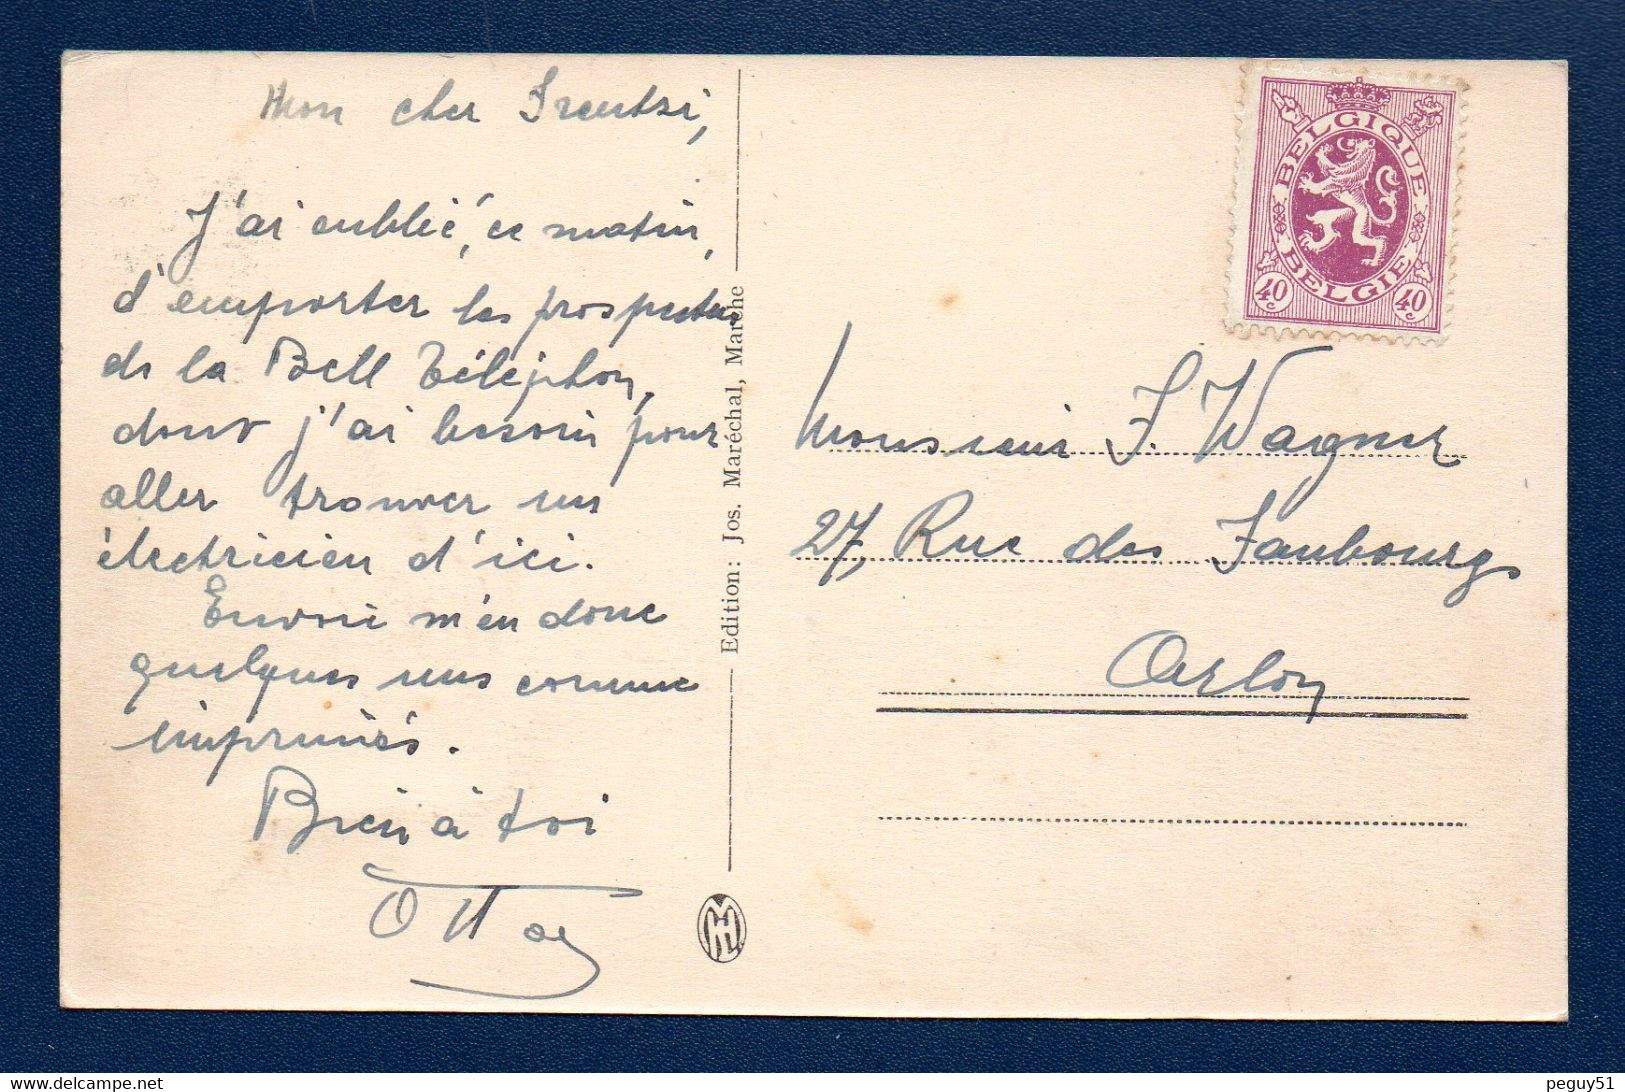 Mon cher Frentzi,
J'ai oublié, ce matin,
d'emporter les prospectus
de la Bell Téléphon,
dont j'ai besoin pour
aller trouver un
électricien d'ici.
Envoie m'en donc
quelques uns comme
imprimés.
Bien à toi
Edition: Jos. Maréchal, Marche
BELGIQUE
BELGIE
40 c
40 c
Monsieur F. Wagner
27, Rue des Faubourgs
Arlon
peguy51